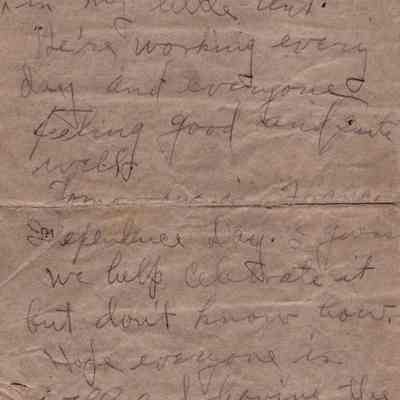 in my little tent.
We're working every
day and everyones
feeling good and quite
well.
Independence Day. I guess
we help celebrate it
but don't know how.
Hope everyone is
the